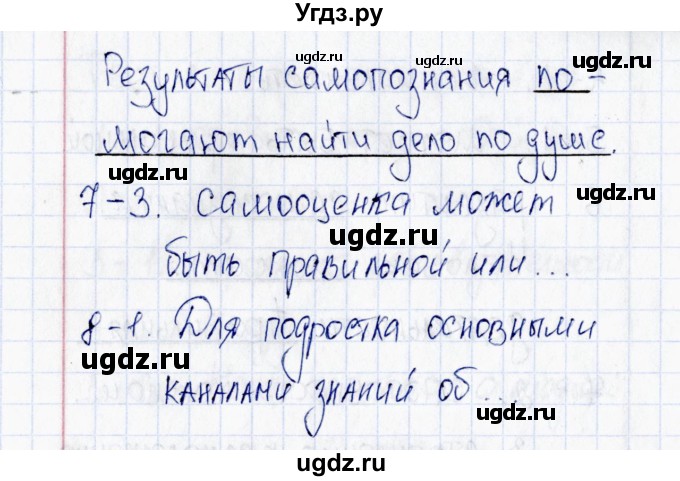 Угдз.ру
ugdz.ru ugdz.ru ugdz.ru
Результаты самопознания по-
могают найти дело по душе.
ugdz.ru ugdz.ru
7-3. Самооценка может
ugdz.ru
быть правильной или...
ugdz.ru ugdz.ru
8-1. Для подростка основными
каналами знаний об...
ugdz.ru ugdz.ru
ugdz.ru